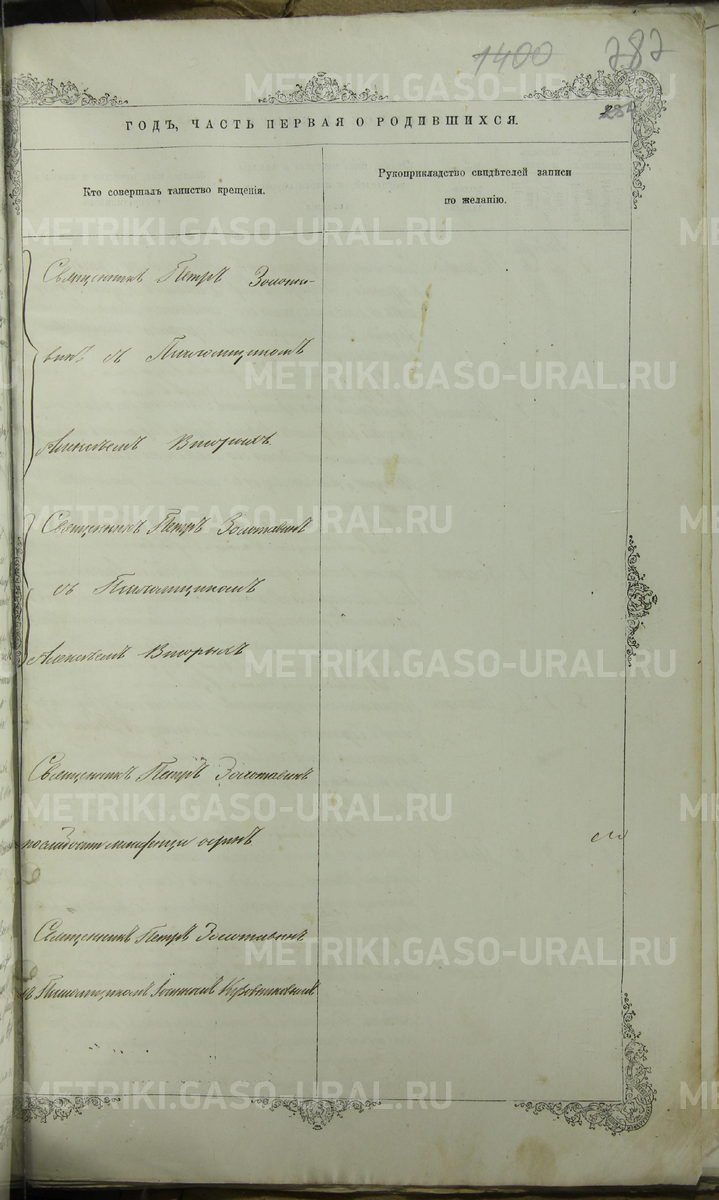 1400 787
284
ГОДЪ, ЧАСТЬ ПЕРВАЯ О РОДИВШИХСЯ.
Кто совершалъ таинство крещенія.
Рукоприкладство свидѣтелей записи
по желанію.
Священникъ Петръ Золота-
винъ съ Псаломщикомъ
Алексѣемъ Вторыхъ
Священникъ Петръ Золотавинъ
съ Псаломщикомъ
Алексѣемъ Вторыхъ
Священникъ Петръ Золотавинъ
по слабости младенца одинъ
Священникъ Петръ Золотавинъ
съ Псаломщикомъ Іоанномъ
METRIKI.GASO-URAL.RU